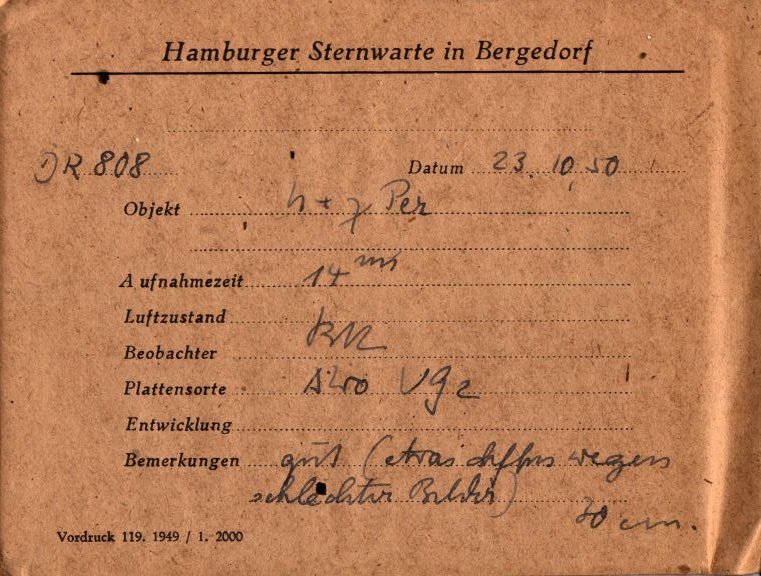 Hamburger Sternwarte in Bergedorf
DR 808 Datum 23. 10. 50
Objekt h + χ Per
Aufnahmezeit 14 min
Luftzustand
Beobachter
Plattensorte VG2
Entwicklung
Bemerkungen gut (etwas diffus wegen
schlechter Bilder)
80 cm.
Vordruck 119. 1949 / 1. 2000